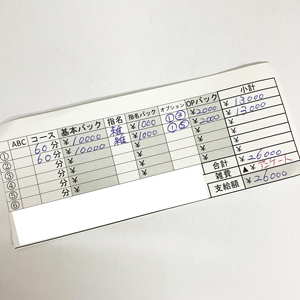 ABC コース 基本バック 指名 指名バック オプション OPバック 小計
① 60分 ¥10000 ¥1000 ①③ ¥2000 ¥13000
② 60分 ¥10000 ¥1000 ①⑤ ¥2000 ¥13000
③ 分 ¥ ¥ ¥ ¥
④ 分 ¥ ¥ ¥ ¥
⑤ 分 ¥ ¥ ¥ ¥
⑥
合計 ¥26000
雑費 ▲¥
支給額 ¥26000